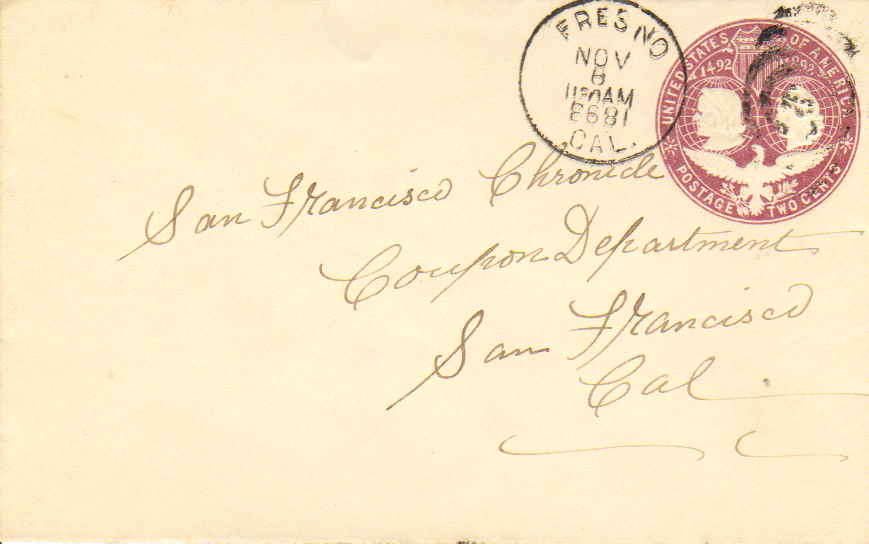 FRESNO
NOV
8
1130AM
1893
CAL.
UNITED STATES OF AMERICA
1492 1892
POSTAGE TWO CENTS
San Francisco Chronicle
Coupon Department
San Francisco
Cal.